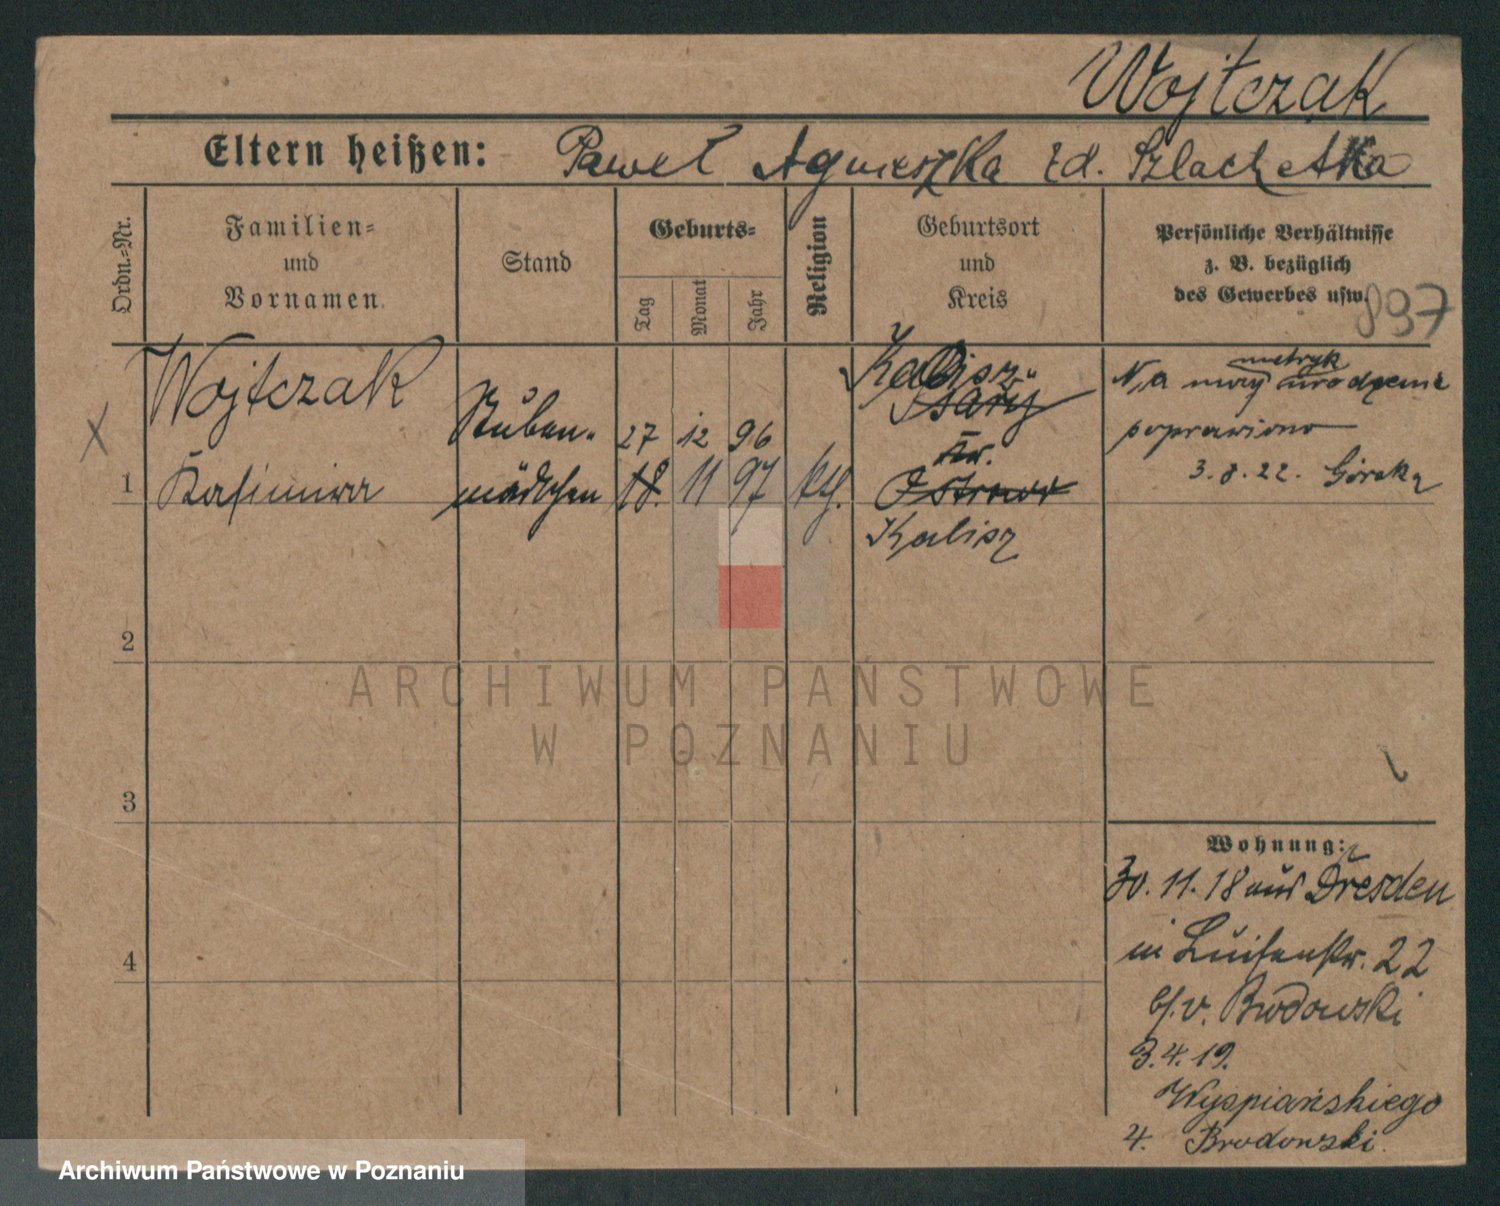 Wojtczak
Eltern heißen: Paweł Agnieszka zd. Szlachetka
Ordn.-Nr.
Familien-
und
Vornamen.
Stand
Geburts-
Tag
Monat
Jahr
Religion
Geburtsort
und
Kreis
Persönliche Verhältnisse
z. B. bezüglich
des Gewerbes usw.
897
X
1
Wojtczak
Kasimira
Stuben-
mädchen
27 12 96
18. 11 97
kth.
Kalisz
Psary
Kr.
Ostrowo
Kalisz
Na mocy metryk urodzenia
poprawiono
3.8.22. Górska
2
3
4
Wohnung:
30. 11. 18 aus Dresden
in Luisenstr. 22
b/. v. Brodowski
3. 4. 19.
Wyspiańskiego
4. Brodowski.
ARCHIWUM PAŃSTWOWE
W POZNANIU
Archiwum Państwowe w Poznaniu